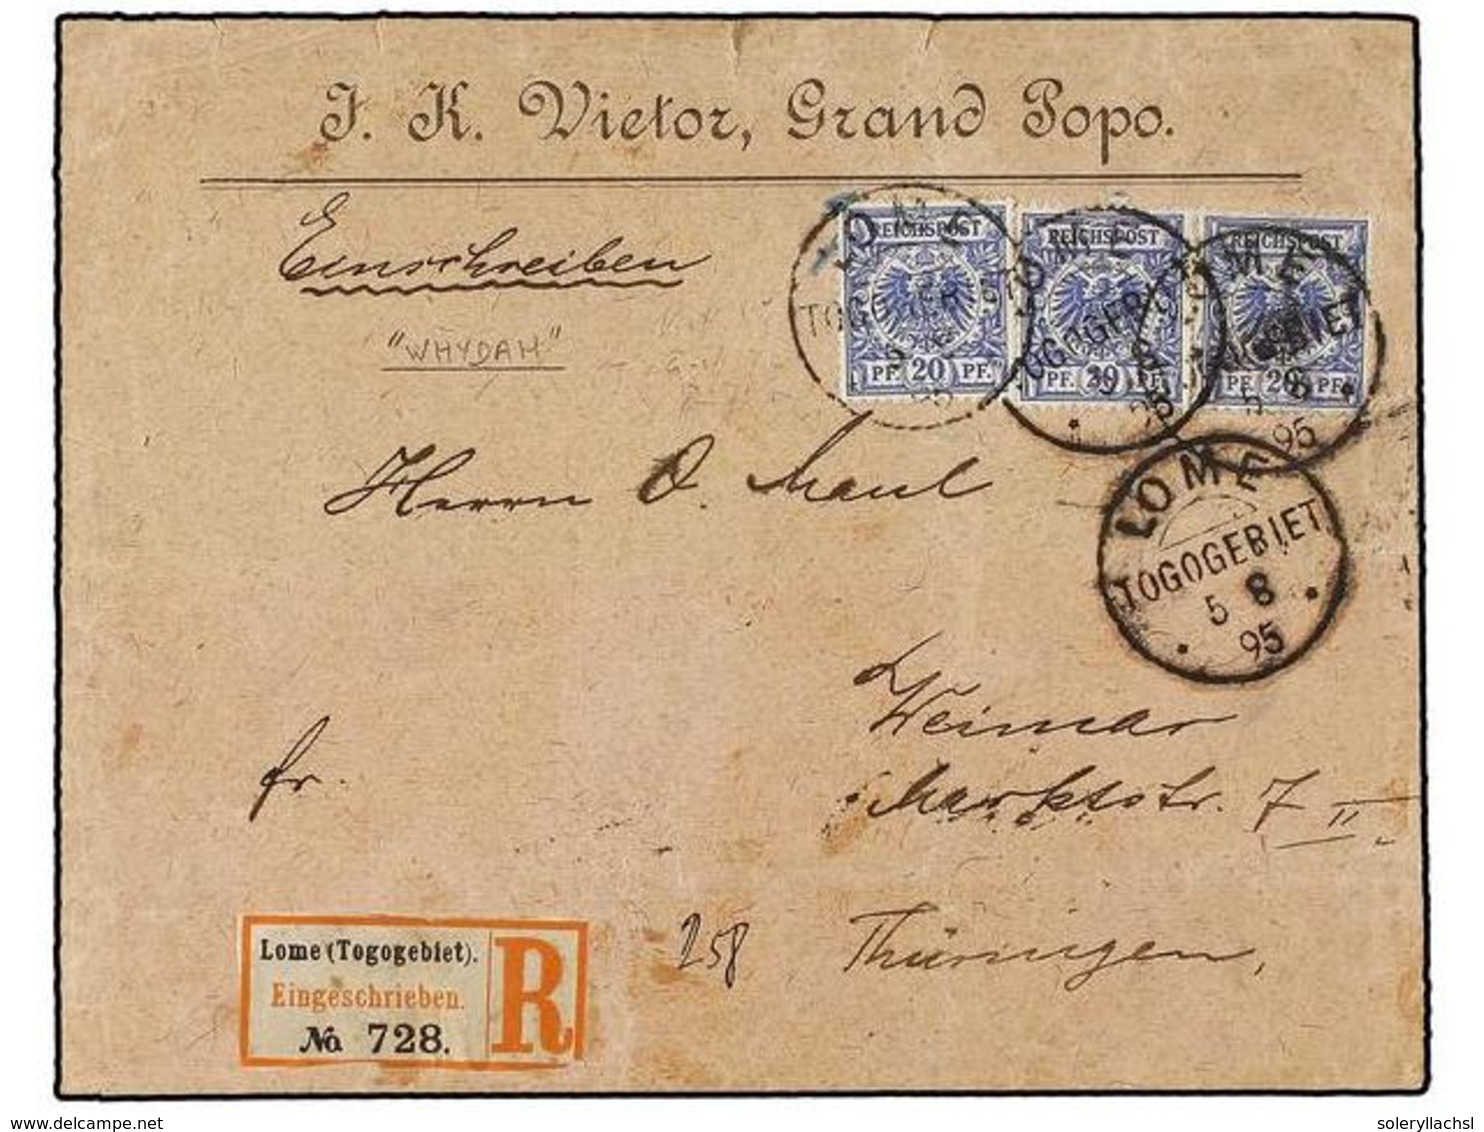 J. K. Vietor, Grand Popo.
Einschreiben
"WHYDAH"
LOME
TOGOGEBIET
REICHSPOST
PF. 20 PF.
LOME
TOGOGEBIET
REICHSPOST
PF. 20 PF.
LOME
TOGOGEBIET
5 8
95
REICHSPOST
PF. 20 PF.
LOME
TOGOGEBIET
5 8
95
Herrn O. Maul
Weimar
fr.
Marktstr. 7 II
258
Thüringen,
Lome (Togogebiet).
Eingeschrieben.
No 728.
R
soleryllachsl